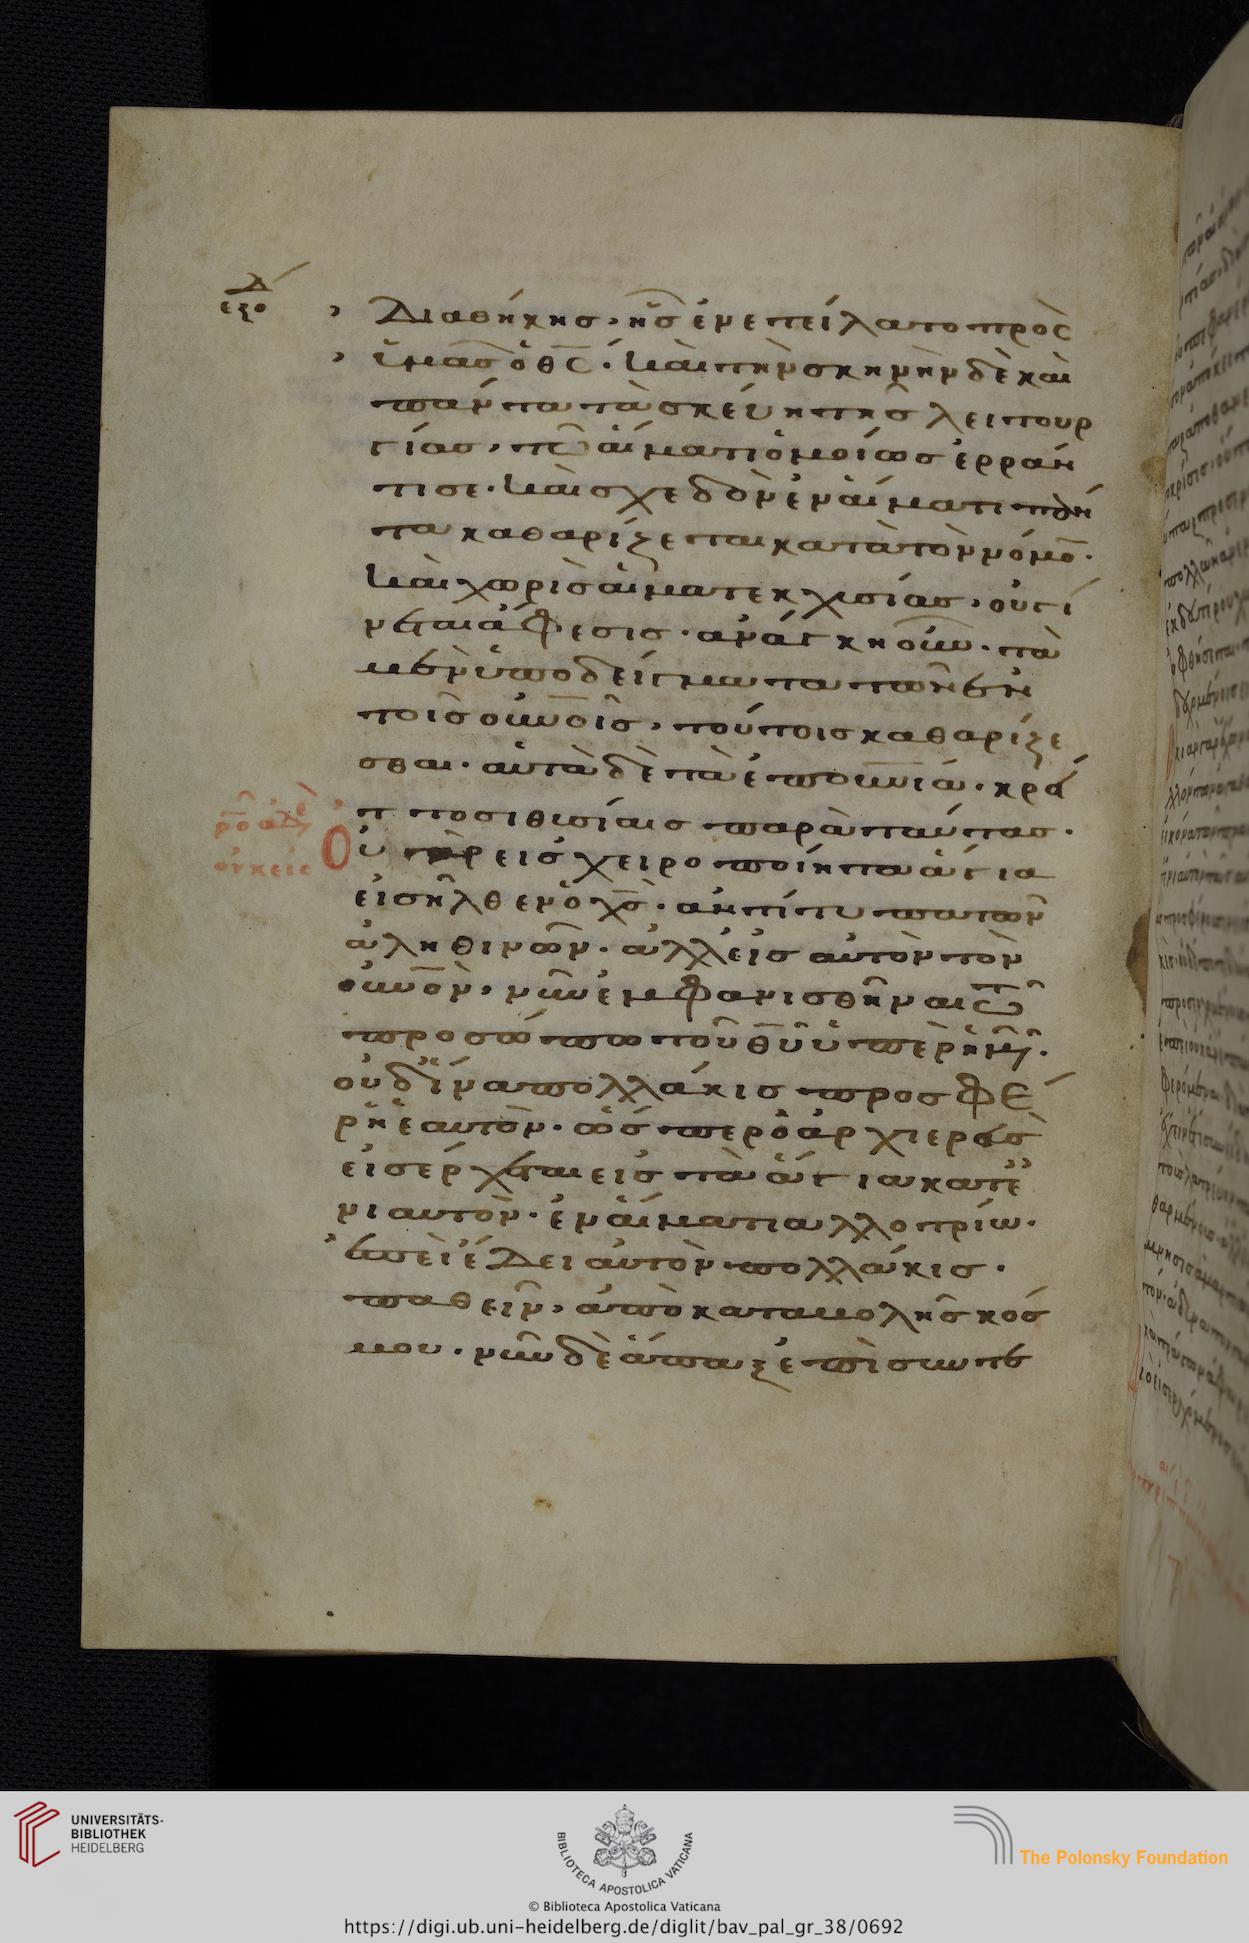 Δ
εξο
› Διαθήκης, ἧς ἐνετείλατο πρὸς
› ὑμᾶς ὁ θς̅. καὶ τὴν σκηνὴν δὲ καὶ
πάντα τὰ σκεύη τῆς λειτουρ
γίας, τῶ αἵματι ὁμοίως ἐρράν
τισε. καὶ σχεδὸν ἐν αἵματι πάν
τα καθαρίζεται κατὰ τὸν νόμο̅.
καὶ χωρὶς αἱματεκχυσίας, οὐ γί
νεται ἄφεσις. ἀνάγκη οὖν. τὰ
μὲν ὑποδείγματα τῶν ἐν
τοῖς οὐνοῖς, τούτοις καθαρίζε
σθαι. αὐτὰ δὲ τὰ ἐπουνια. κρεί
τ τοσι θυσίαις παρὰ ταύτας.
Οὐ γὰρ εἰς χειροποίητα ἅγια
εἰσῆλθεν ὁ χς̅. ἀντίτυπα τῶν
ἀληθινῶν. ἀλλ' εἰς αὐτὸν τὸν
οὐνον, νῦν ἐμφανισθῆναι τῶ
προσώπω τοῦ θυ̅ ὑπὲρ ἡμῶν.
οὐδ' ἵνα πολλάκις προσφέ
ρη ἑαυτὸν. ὥσπερ ὁ ἀρχιερεὺς
εἰσέρχεται εἰς τὰ ἅγια κατ' ἐ
νιαυτὸν. ἐν αἵματι αλλοτρίω.
ἐπεὶ ἔδει αὐτὸν πολλάκις.
παθεῖν, ἀπὸ καταβολῆς κόσ
μου. νῦν δὲ ἅπαξ ἐπὶ συντε
UNIVERSITÄTS-
BIBLIOTHEK
HEIDELBERG
BIBLIOTECA APOSTOLICA VATICANA
© Biblioteca Apostolica Vaticana
The Polonsky Foundation
https://digi.ub.uni-heidelberg.de/diglit/bav_pal_gr_38/0692